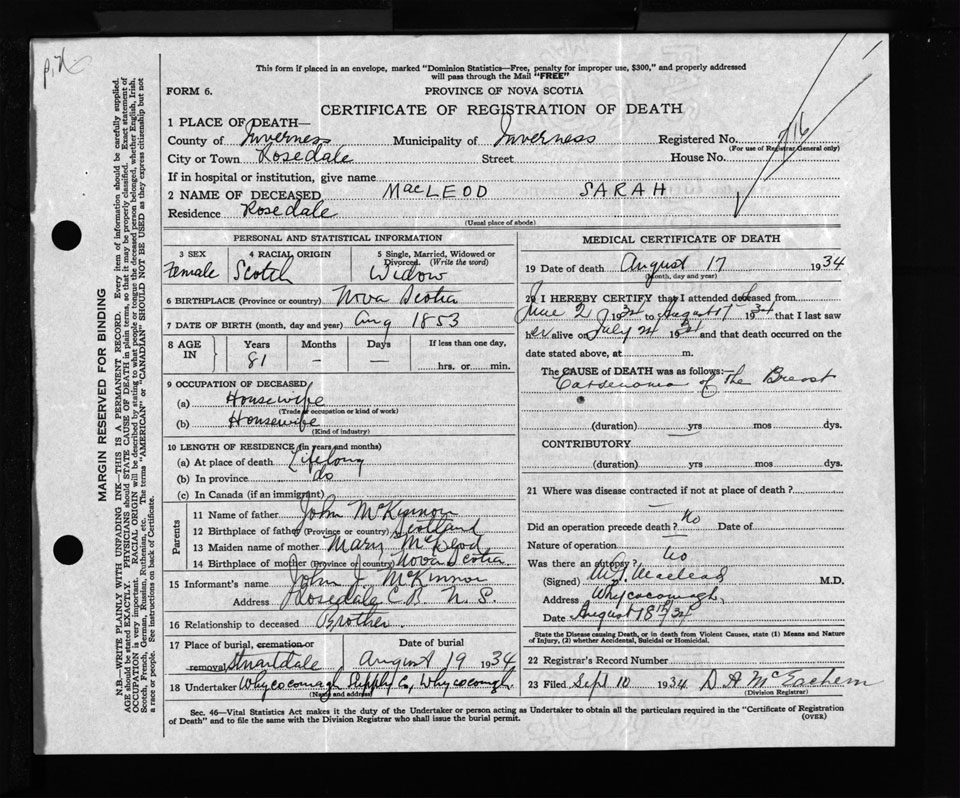 This form if placed in an envelope, marked "Dominion Statistics—Free, penalty for improper use, $300," and properly addressed
will pass through the Mail "FREE"
FORM 6.
PROVINCE OF NOVA SCOTIA
CERTIFICATE OF REGISTRATION OF DEATH
1 PLACE OF DEATH—
County of Inverness Municipality of Inverness Registered No. 716
(For use of Registrar General only)
City or Town Rosedale Street House No.
If in hospital or institution, give name
2 NAME OF DECEASED MacLEOD SARAH
Residence Rosedale
(Usual place of abode)
PERSONAL AND STATISTICAL INFORMATION
3 SEX Female
4 RACIAL ORIGIN Scotch
5 Single, Married, Widowed or Divorced. (Write the word) Widow
6 BIRTHPLACE (Province or country) Nova Scotia
7 DATE OF BIRTH (month, day and year) Aug 1853
8 AGE IN Years Months Days If less than one day,
81 — — hrs. or min.
9 OCCUPATION OF DECEASED
(a) Housewife
(Trade or occupation or kind of work)
(b) Housewife
(Kind of industry)
10 LENGTH OF RESIDENCE (in years and months)
(a) At place of death Lifelong
(b) In province do
(c) In Canada (if an immigrant)
Parents
11 Name of father John McKinnon
12 Birthplace of father (Province or country) Scotland
13 Maiden name of mother Mary McLeod
14 Birthplace of mother (Province or country) Nova Scotia
15 Informant's name John J. McKinnon
Address Rosedale C.B. N.S.
16 Relationship to deceased Brother
17 Place of burial, cremation or removal Date of burial
Stuartdale August 19 1934
18 Undertaker Whycocomagh Supply Co, Whycocomagh.
(Name and address)
MEDICAL CERTIFICATE OF DEATH
19 Date of death August 17 1934
(Month, day and year)
20 I HEREBY CERTIFY that I attended deceased from
June 2 1934 to August 17 1934 that I last saw
her alive on July 24 1934 and that death occurred on the
date stated above, at m.
The CAUSE of DEATH was as follows:—
Carsenoma of the Breast
(duration) yrs mos dys.
CONTRIBUTORY
(duration) yrs mos dys.
21 Where was disease contracted if not at place of death?
—
Did an operation precede death? No Date of
Nature of operation
Was there an autopsy? no
(Signed) Macleod M.D.
Address Whycocomagh,
Date August 18th/34
State the Disease causing Death, or in death from Violent Causes, state (1) Means and Nature
of Injury, (2) whether Accidental, Suicidal or Homicidal.
22 Registrar's Record Number
23 Filed Sept 10 1934 D A McEachern
(Division Registrar)
Sec. 46—Vital Statistics Act makes it the duty of the Undertaker or person acting as Undertaker to obtain all the particulars required in the "Certificate of Registration
of Death" and to file the same with the Division Registrar who shall issue the burial permit.
(OVER)
MARGIN RESERVED FOR BINDING
N.B.—WRITE PLAINLY WITH UNFADING INK—THIS IS A PERMANENT RECORD. Every item of information should be carefully supplied.
AGE should be stated EXACTLY. PHYSICIANS should STATE CAUSE OF DEATH in plain terms, so that it may be properly classified. Exact statement of
OCCUPATION is very important. RACIAL ORIGIN will be described by stating to what people or tongue the deceased person belonged, whether English, Irish,
Scotch, French, German, Russian, Ruthenian, etc. The terms "AMERICAN" or "CANADIAN" SHOULD NOT BE USED as they express citizenship but not
a race or people. See instructions on back of Certificate.